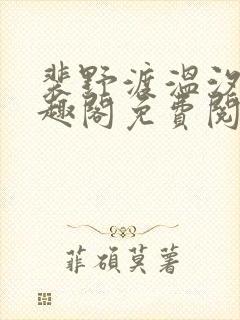 裴野渡温汐
趣阁免费阅
菲硕莫著